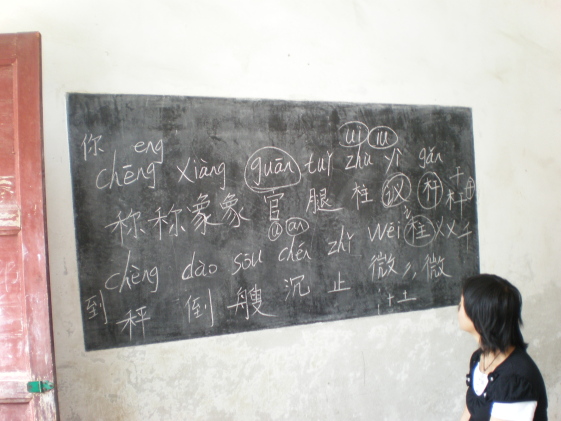 你 eng ui iu
chēng xiàng guān tuǐ zhù yì gǎn
称称象象 官 腿 柱 议 杆 杆
u an
chèng dào sōu chén zhǐ wēi 柱 XX 千
到 秤 倒 艘 沉 止 微 微